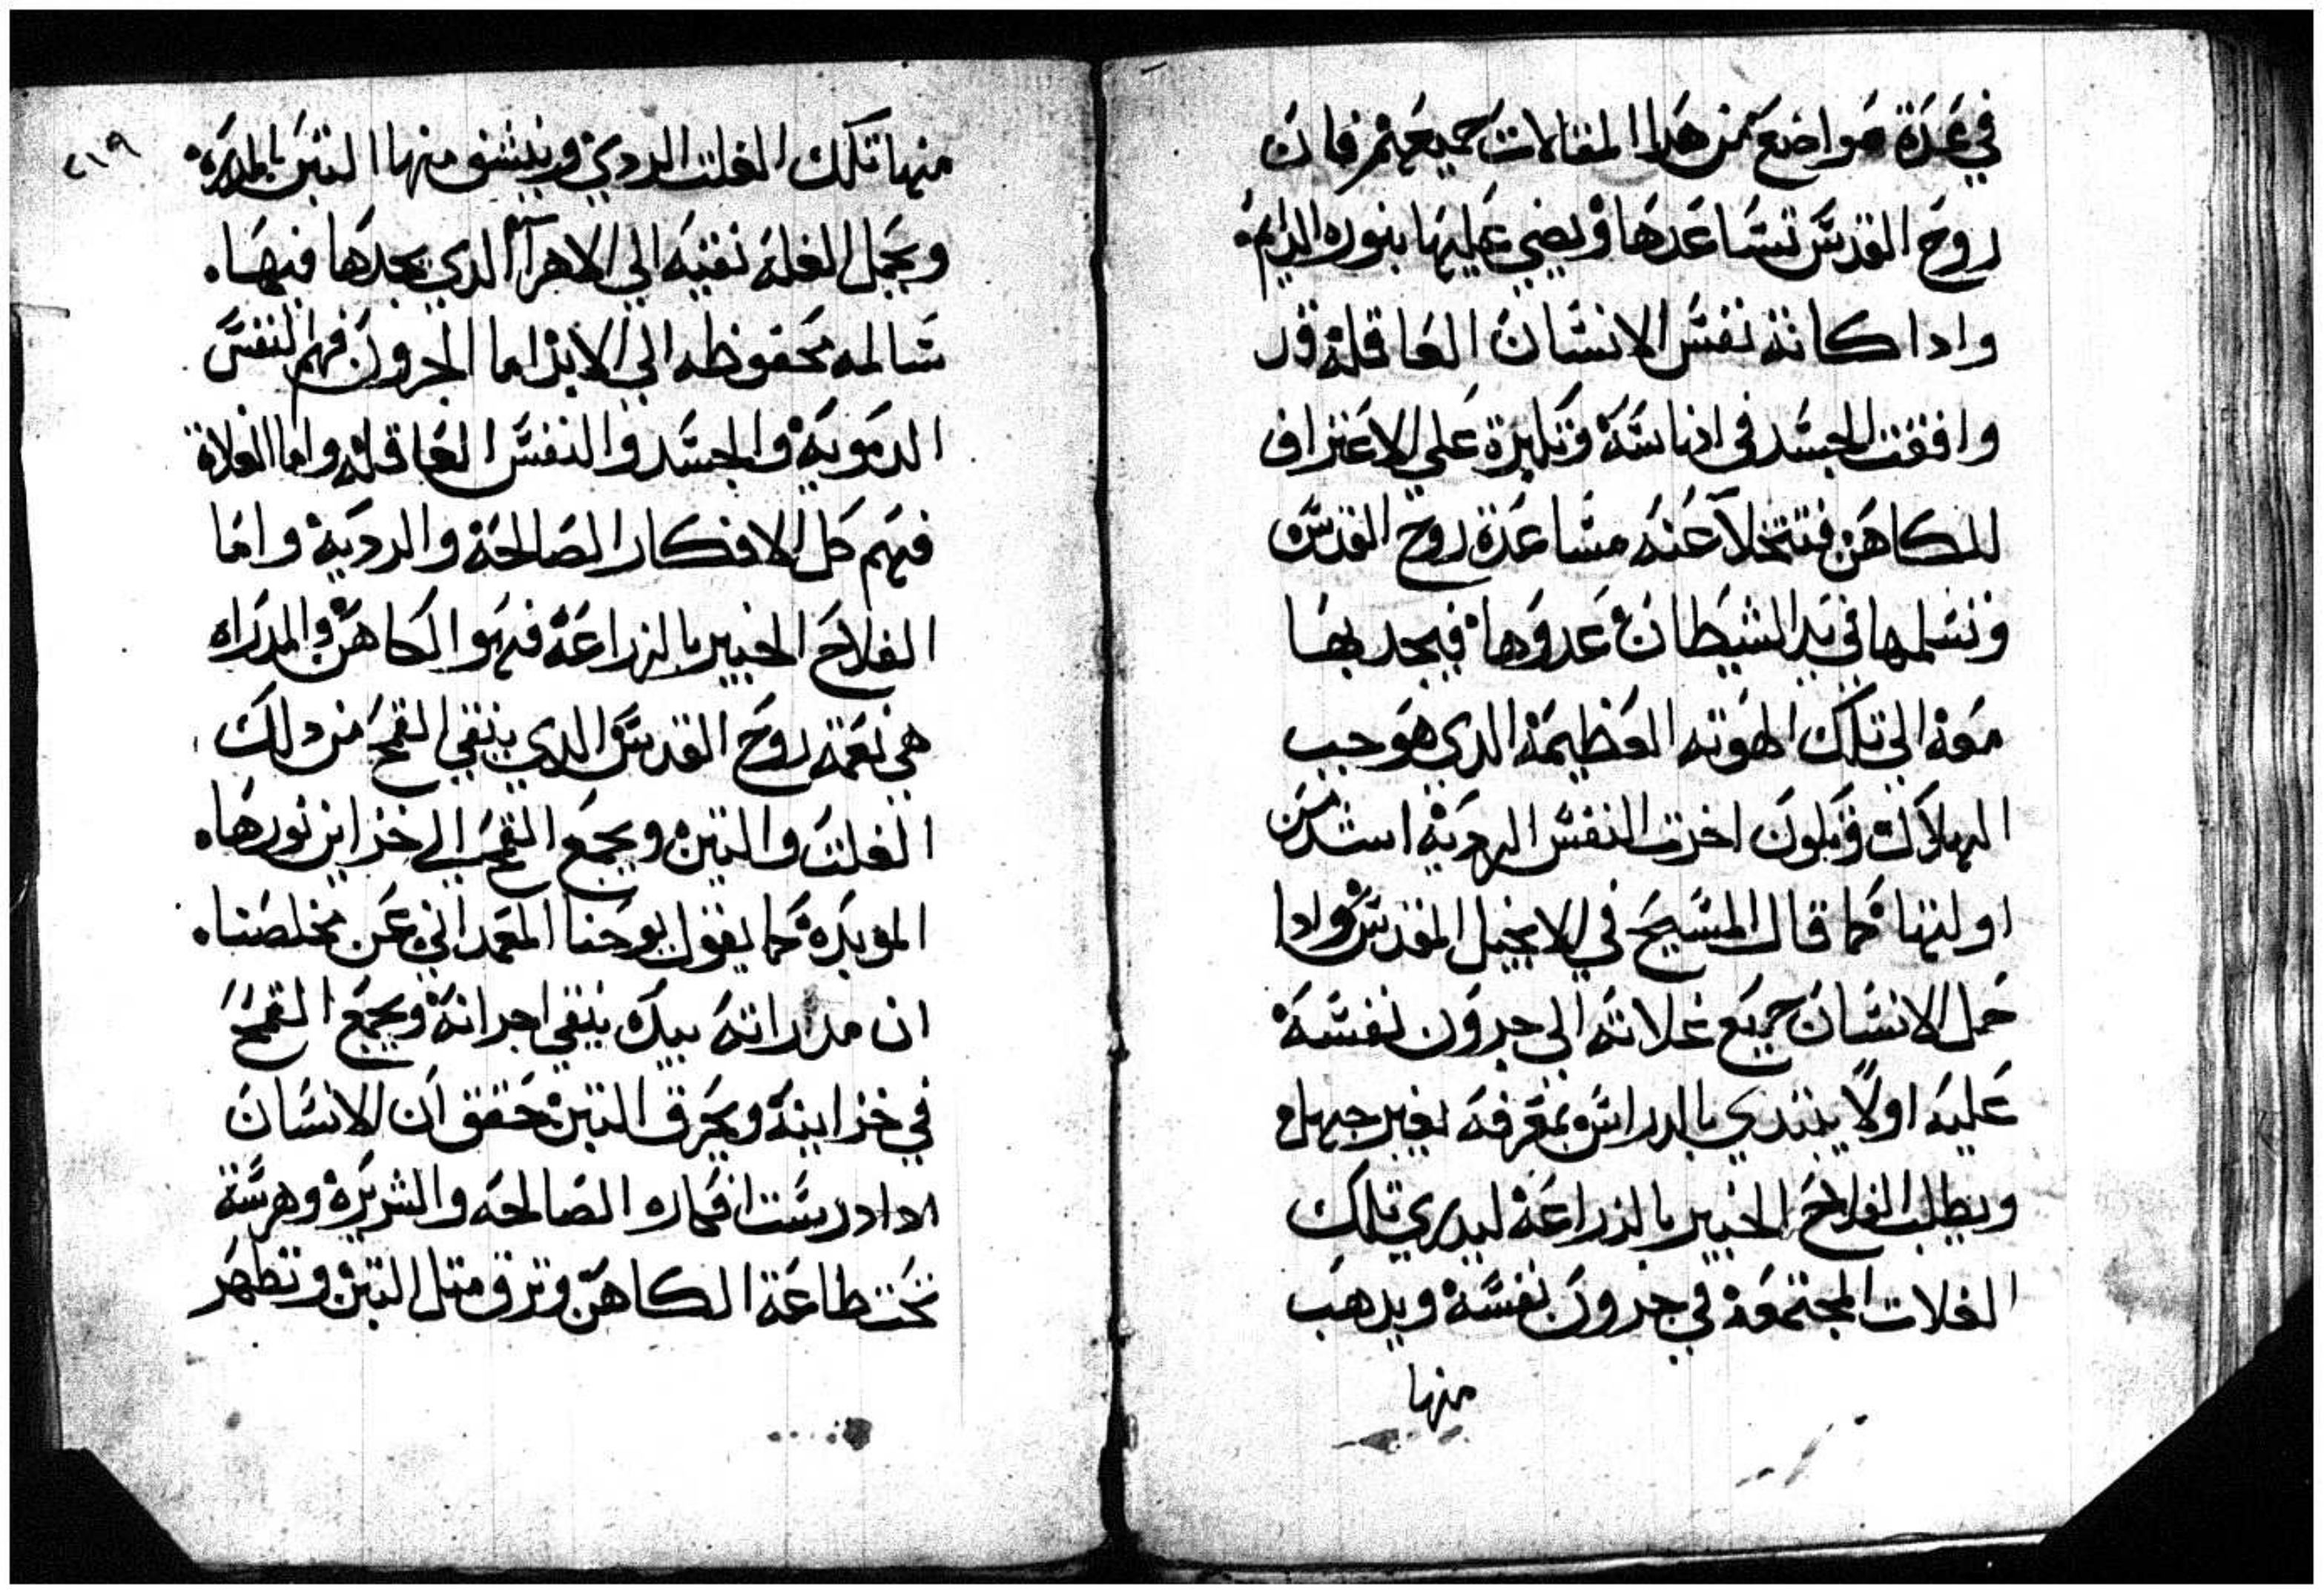 في عدة مواضع من هدا المقالات جميعهم فان
روح القدس تساعدها ويضي عليها بنوره الدايم
وادا كانة نفس الانسان العاقلة قد
وافقت الجسد في ادناسة وتلبزة علي الاعتراف
للكاهن فتتخلا عنه مساعدة روح القدس
وتسلمها في يد الشيطان عدوها فيجدبها
معه الي تلك الهوته العظيمة الدي هو جب
الهلاك وتكون اخرت النفس الرديه اشد من
اوليتها كما قال المسيح في الانجيل المقدس وادا
حمل الانسان جميع غلاته الي جرون نفسة
عليه اولا يبتدي بالدراس بمعرفه بغير جهل
ويطلب الفلاح الخبير بالزراعة ليدري تلك
الغلات المجتمعة في جرون نفسة ويدهب
منها
٤١٩
منها تلك الغلت الردي وينشف منها التبن بالمدره
ويحمل الغله نقيه الي الاهرآ الدي يجدها فيها
سالمه محفوظه الي الابد اما الجرون فهم النفس
الدمويه والجسد والنفس العاقله واما الغلاة
فهم كل الافكار الصالحة والرديه واما
الفلاح الخبير بالزراعة فهو الكاهن والمدراه
هي نعمة روح القدس الدي ينقي القمح من دلك
الغلت والتبن ويجمع القمح الي خزاين نورها
الموبدة كما يقول يوحنا المعمداني عن مخلصنا
ان مدراته بيده ينقي اجرانة ويجمع القمح
في خزاينة ويحرق التبن حقق ان الانسان
ادا درست افكاره الصالحه والشريرة وهرسة
تحت طاعة الكاهن وترق متل التبن وتطهر